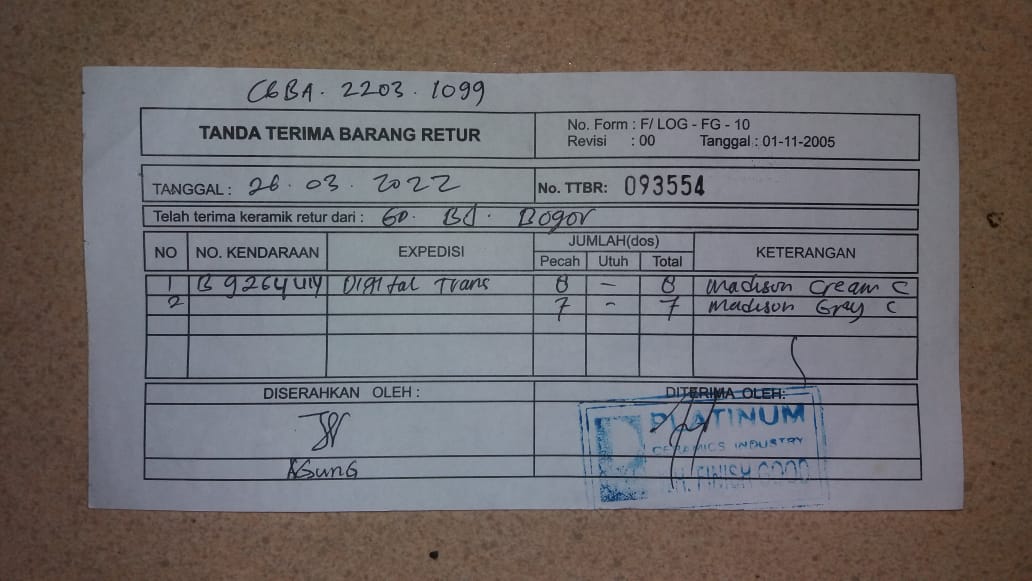 CGBA. 2203. 1099
TANDA TERIMA BARANG RETUR
No. Form : F/ LOG - FG - 10
Revisi : 00 Tanggal : 01-11-2005
TANGGAL : 26. 03. 2022 No. TTBR: 093554
Telah terima keramik retur dari : GD. BJ. Bogor
NO NO. KENDARAAN EXPEDISI JUMLAH(dos) KETERANGAN
Pecah Utuh Total
1 B 9264 Digital Trans 8 - 8 Madison Cream C
2 7 - 7 Madison Grey C
DISERAHKAN OLEH : DITERIMA OLEH:
AGUNG
PLATINUM
CERAMICS INDUSTRY
FINISH GOOD